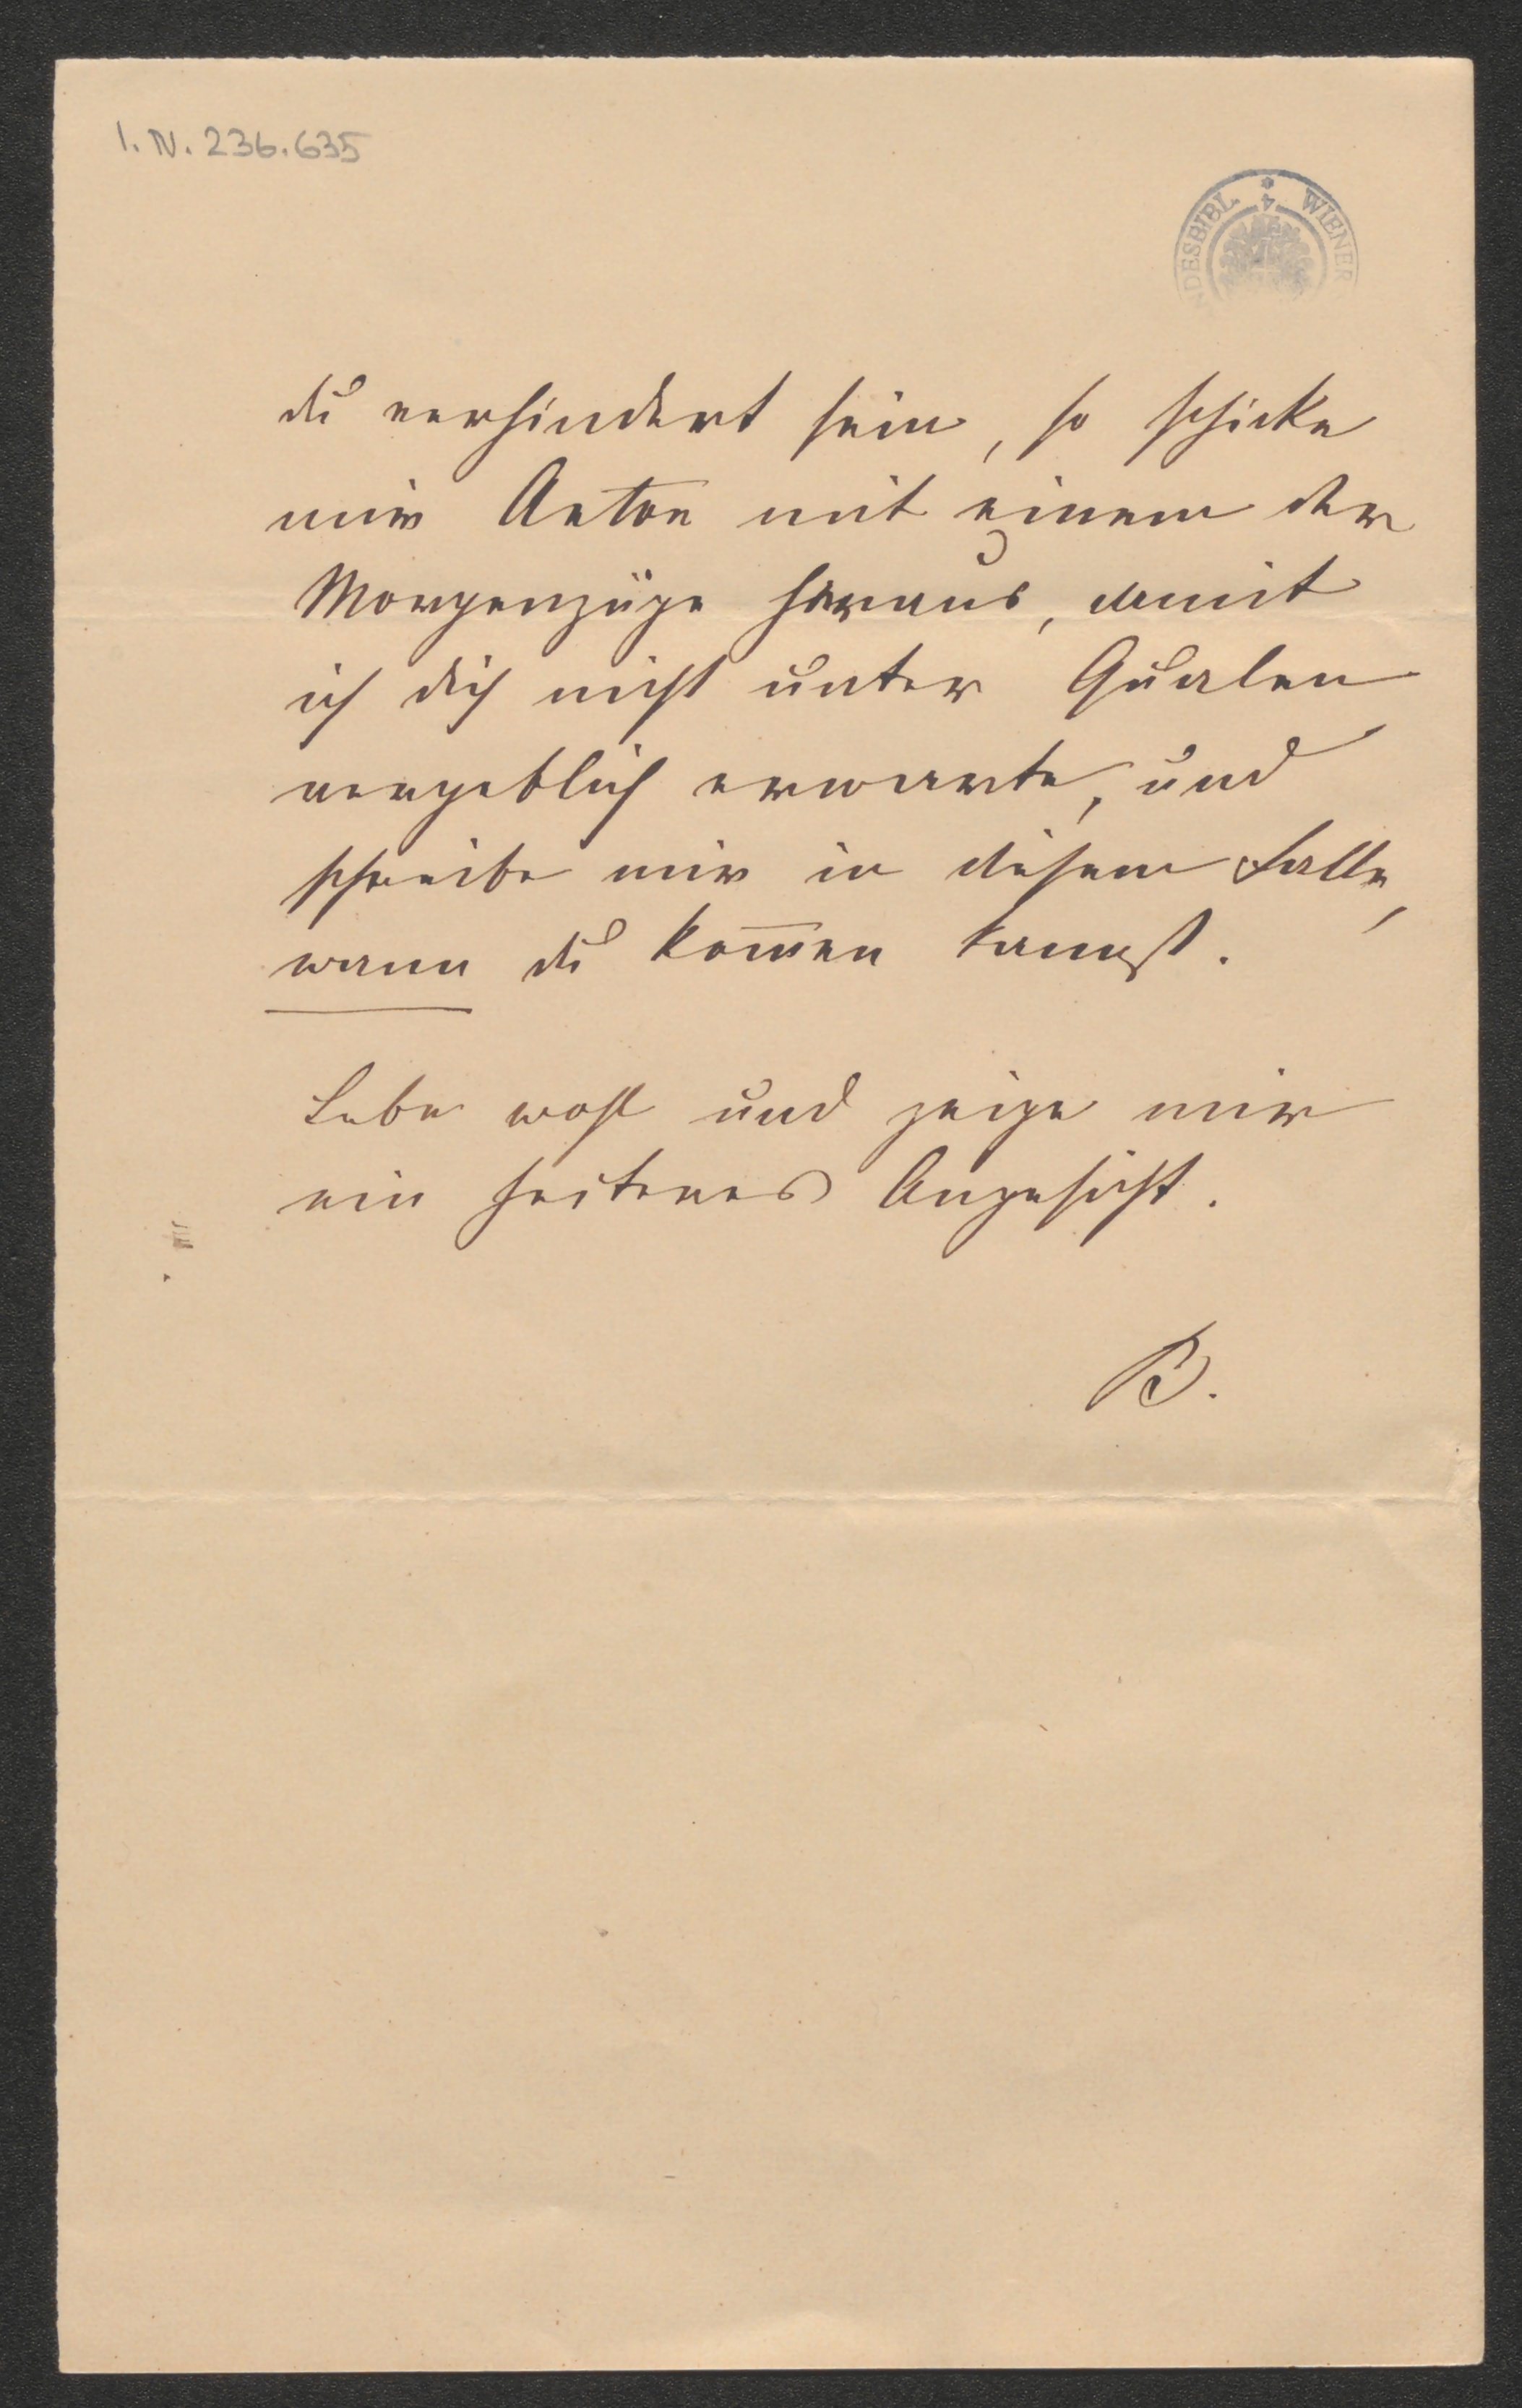 I.N. 236.635
NDESBIBL. * WIENER
du verhindert sein, so schicke
mir Anton mit einem der
Morgenzüge heraus, damit
ich dich nicht unter Qualen
vergeblich erwarte, und
schreibe mir in diesem Falle,
wann du kom̅en kannst.
Lebe wohl und zeige mir
ein heiteres Angesicht.
B.